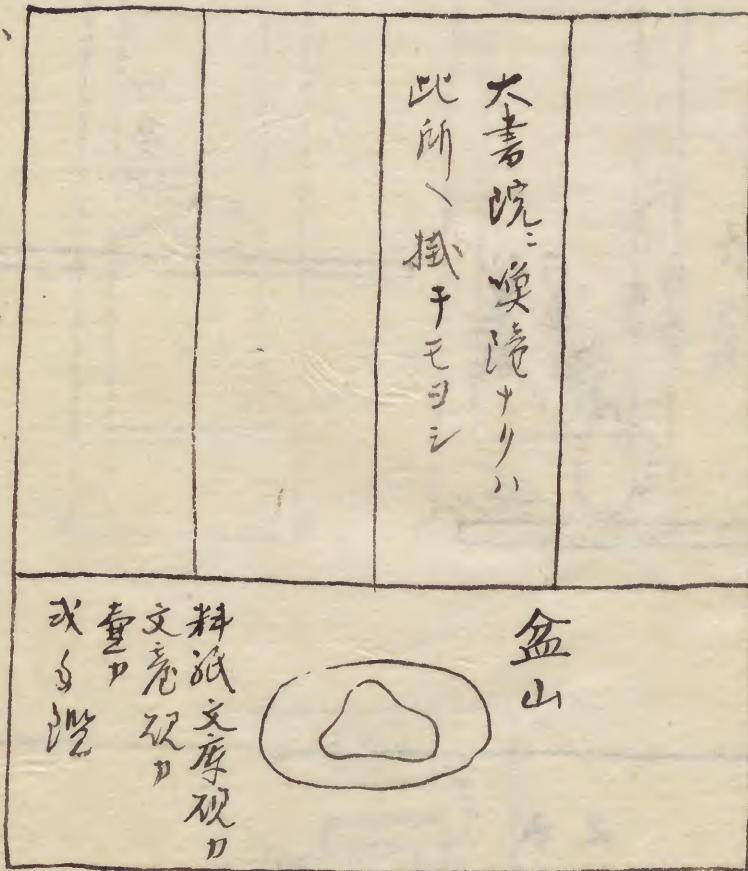 大書院ニ喚鐘ナクハ
此所ヘ掛テモヨシ
盆山
料紙文庫硯カ
文臺硯カ
壷カ
或ハ